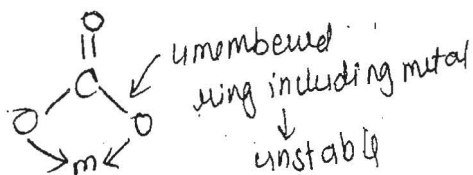 O
C
O O
m
4 membered
ring including metal
unstable